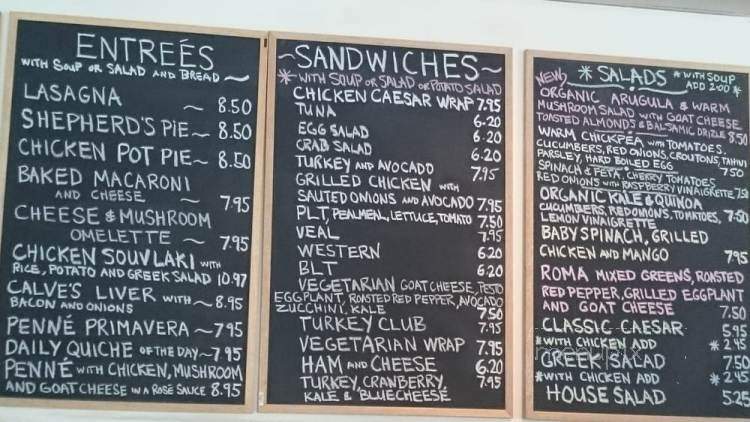 ENTREÉS
WITH SOUP OR SALAD AND BREAD ~
LASAGNA ~ 8.50
SHEPHERD'S PIE ~ 8.50
CHICKEN POT PIE ~ 8.50
BAKED MACARONI
AND CHEESE ~ 7.95
CHEESE & MUSHROOM
OMELETTE ~ 7.95
CHICKEN SOUVLAKI WITH
RICE, POTATO AND GREEK SALAD 10.97
CALVE'S LIVER WITH ~ 8.95
BACON AND ONIONS
PENNÉ PRIMAVERA ~ 7.95
DAILY QUICHE OF THE DAY ~ 7.95
PENNÉ WITH CHICKEN, MUSHROOM
AND GOAT CHEESE IN A ROSÉ SAUCE 8.95
~SANDWICHES~
* WITH SOUP OR SALAD OR POTATO SALAD
CHICKEN CAESAR WRAP 7.95
TUNA 6.20
EGG SALAD 6.20
CRAB SALAD 6.20
TURKEY AND AVOCADO 7.95
GRILLED CHICKEN WITH
SAUTED ONIONS AND AVOCADO 7.95
PLT, PEALMEAL, LETTUCE, TOMATO 7.50
VEAL 7.95
WESTERN 6.20
BLT 6.20
VEGETARIAN GOAT CHEESE, PESTO
EGGPLANT, ROASTED RED PEPPER, AVOCADO
ZUCCHINI, KALE 7.50
TURKEY CLUB 7.95
VEGETARIAN WRAP 7.95
HAM AND CHEESE 6.20
TURKEY, CRANBERRY, 7.95
KALE & BLUE CHEESE
* SALADS * WITH SOUP
ADD 2.00 *
NEW
ORGANIC ARUGULA & WARM
MUSHROOM SALAD WITH GOAT CHEESE
TOASTED ALMONDS & BALSAMIC DRIZLE 8.50
WARM CHICKPEA WITH TOMATOES,
CUCUMBERS, RED ONIONS, CROUTONS, TAHINI
PARSLEY, HARD BOILED EGG 7.50
SPINACH & FETA, CHERRY TOMATOES
RED ONIONS WITH RASPBERRY VINAIGRETTE 7.50
ORGANIC KALE & QUINOA
CUCUMBERS, RED ONIONS, TOMATOES, 7.50
LEMON VINAIGRETTE
BABY SPINACH, GRILLED
CHICKEN AND MANGO 7.95
ROMA MIXED GREENS, ROASTED
RED PEPPER, GRILLED EGGPLANT
AND GOAT CHEESE 7.50
CLASSIC CAESAR 5.95
*WITH CHICKEN ADD * 2.45
GREEK SALAD 7.50
*WITH CHICKEN ADD * 2.45
HOUSE SALAD 5.25